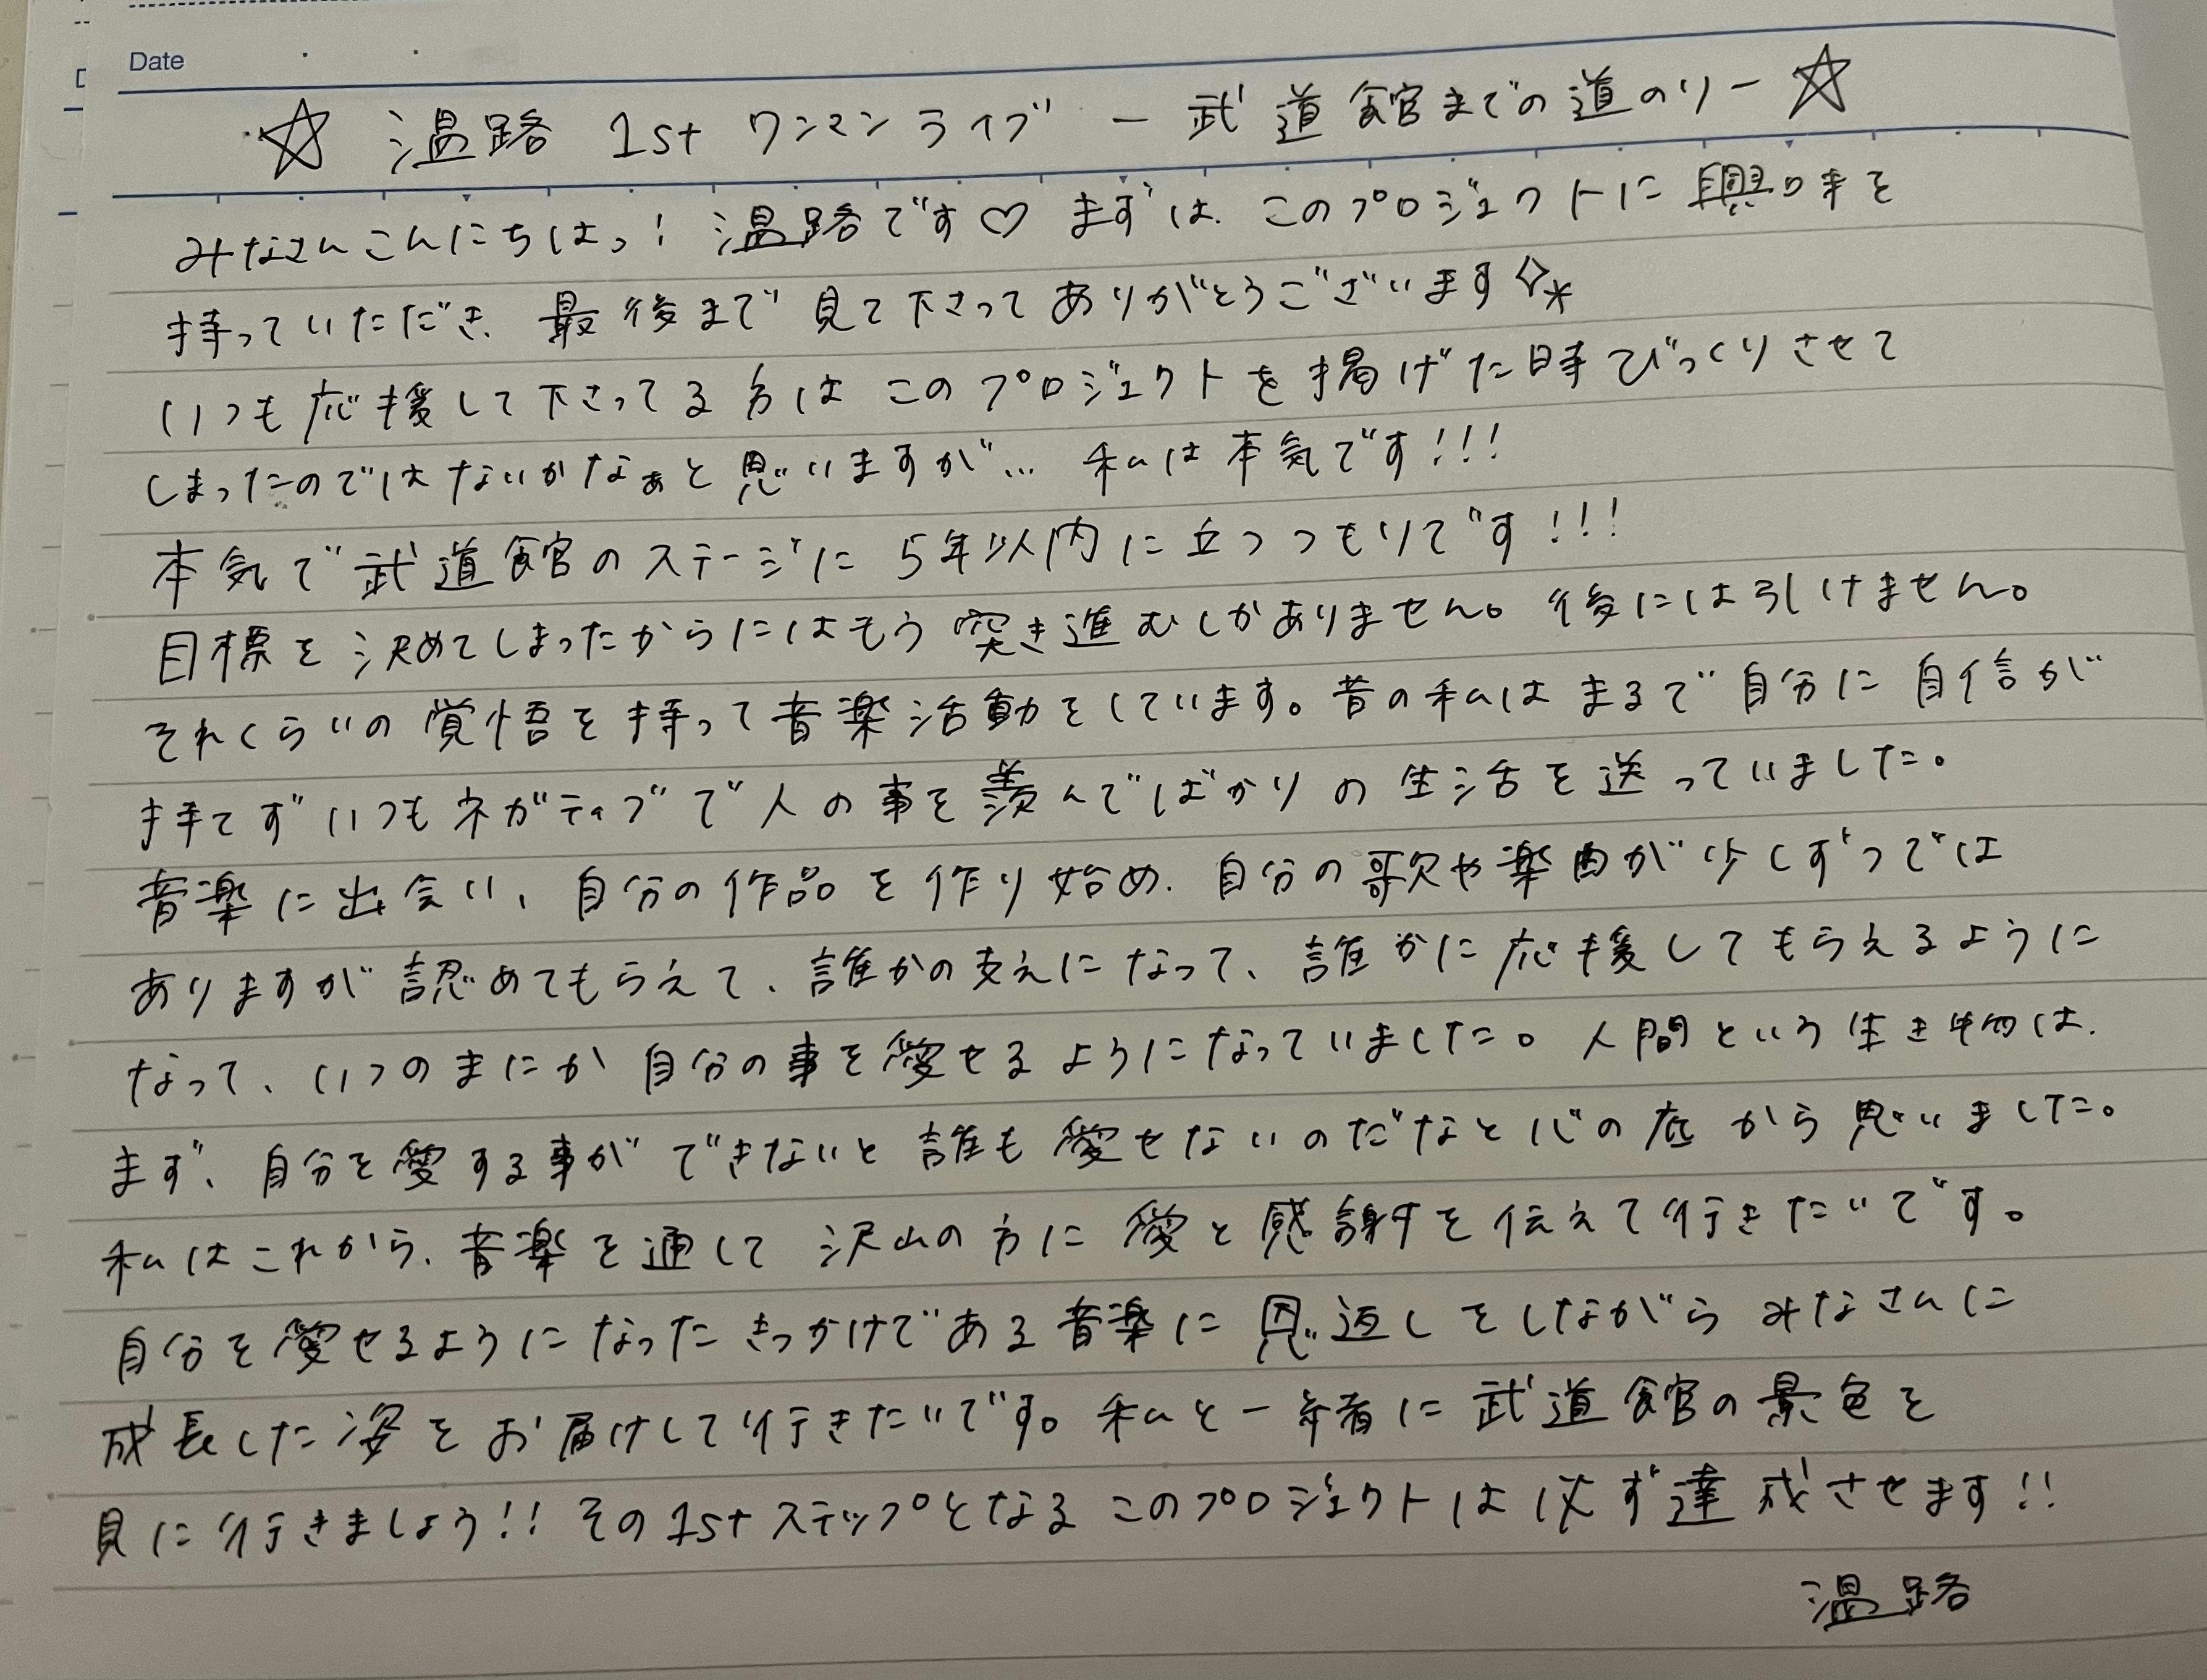 Date
☆ 温路 1st ワンマンライブ ー武道館までの道のりー ☆
みなさんこんにちはっ! 温路です♡ まずは、このプロジェクトに興味を
持っていただき、最後まで見て下さってありがとうございます✧*
いつも応援して下さってる方はこのプロジェクトを掲げた時びっくりさせて
しまったのではないかなぁと思いますが… 私は本気です!!!
本気で武道館のステージに5年以内に立つつもりです!!!
目標を決めてしまったからにはもう突き進むしかありません。後には引けません。
それくらいの覚悟を持って音楽活動をしています。昔の私はまるで自分に自信が
持てずいつもネガティブで人の事を羨んでばかりの生活を送っていました。
音楽に出会い、自分の作品を作り始め、自分の歌や楽曲が少しずつでは
ありますが認めてもらえて、誰かの支えになって、誰かに応援してもらえるように
なって、いつのまにか自分の事を愛せるようになっていました。人間という生き物は、
まず、自分を愛する事ができないと誰も愛せないのだなと心の底から思いました。
私はこれから、音楽を通して沢山の方に愛と感謝を伝えて行きたいです。
自分を愛せるようになったきっかけである音楽に恩返しをしながらみなさんに
成長した姿をお届けして行きたいです。私と一緒に武道館の景色を
見に行きましょう!! その1stステップとなるこのプロジェクトは必ず達成させます!!
温路